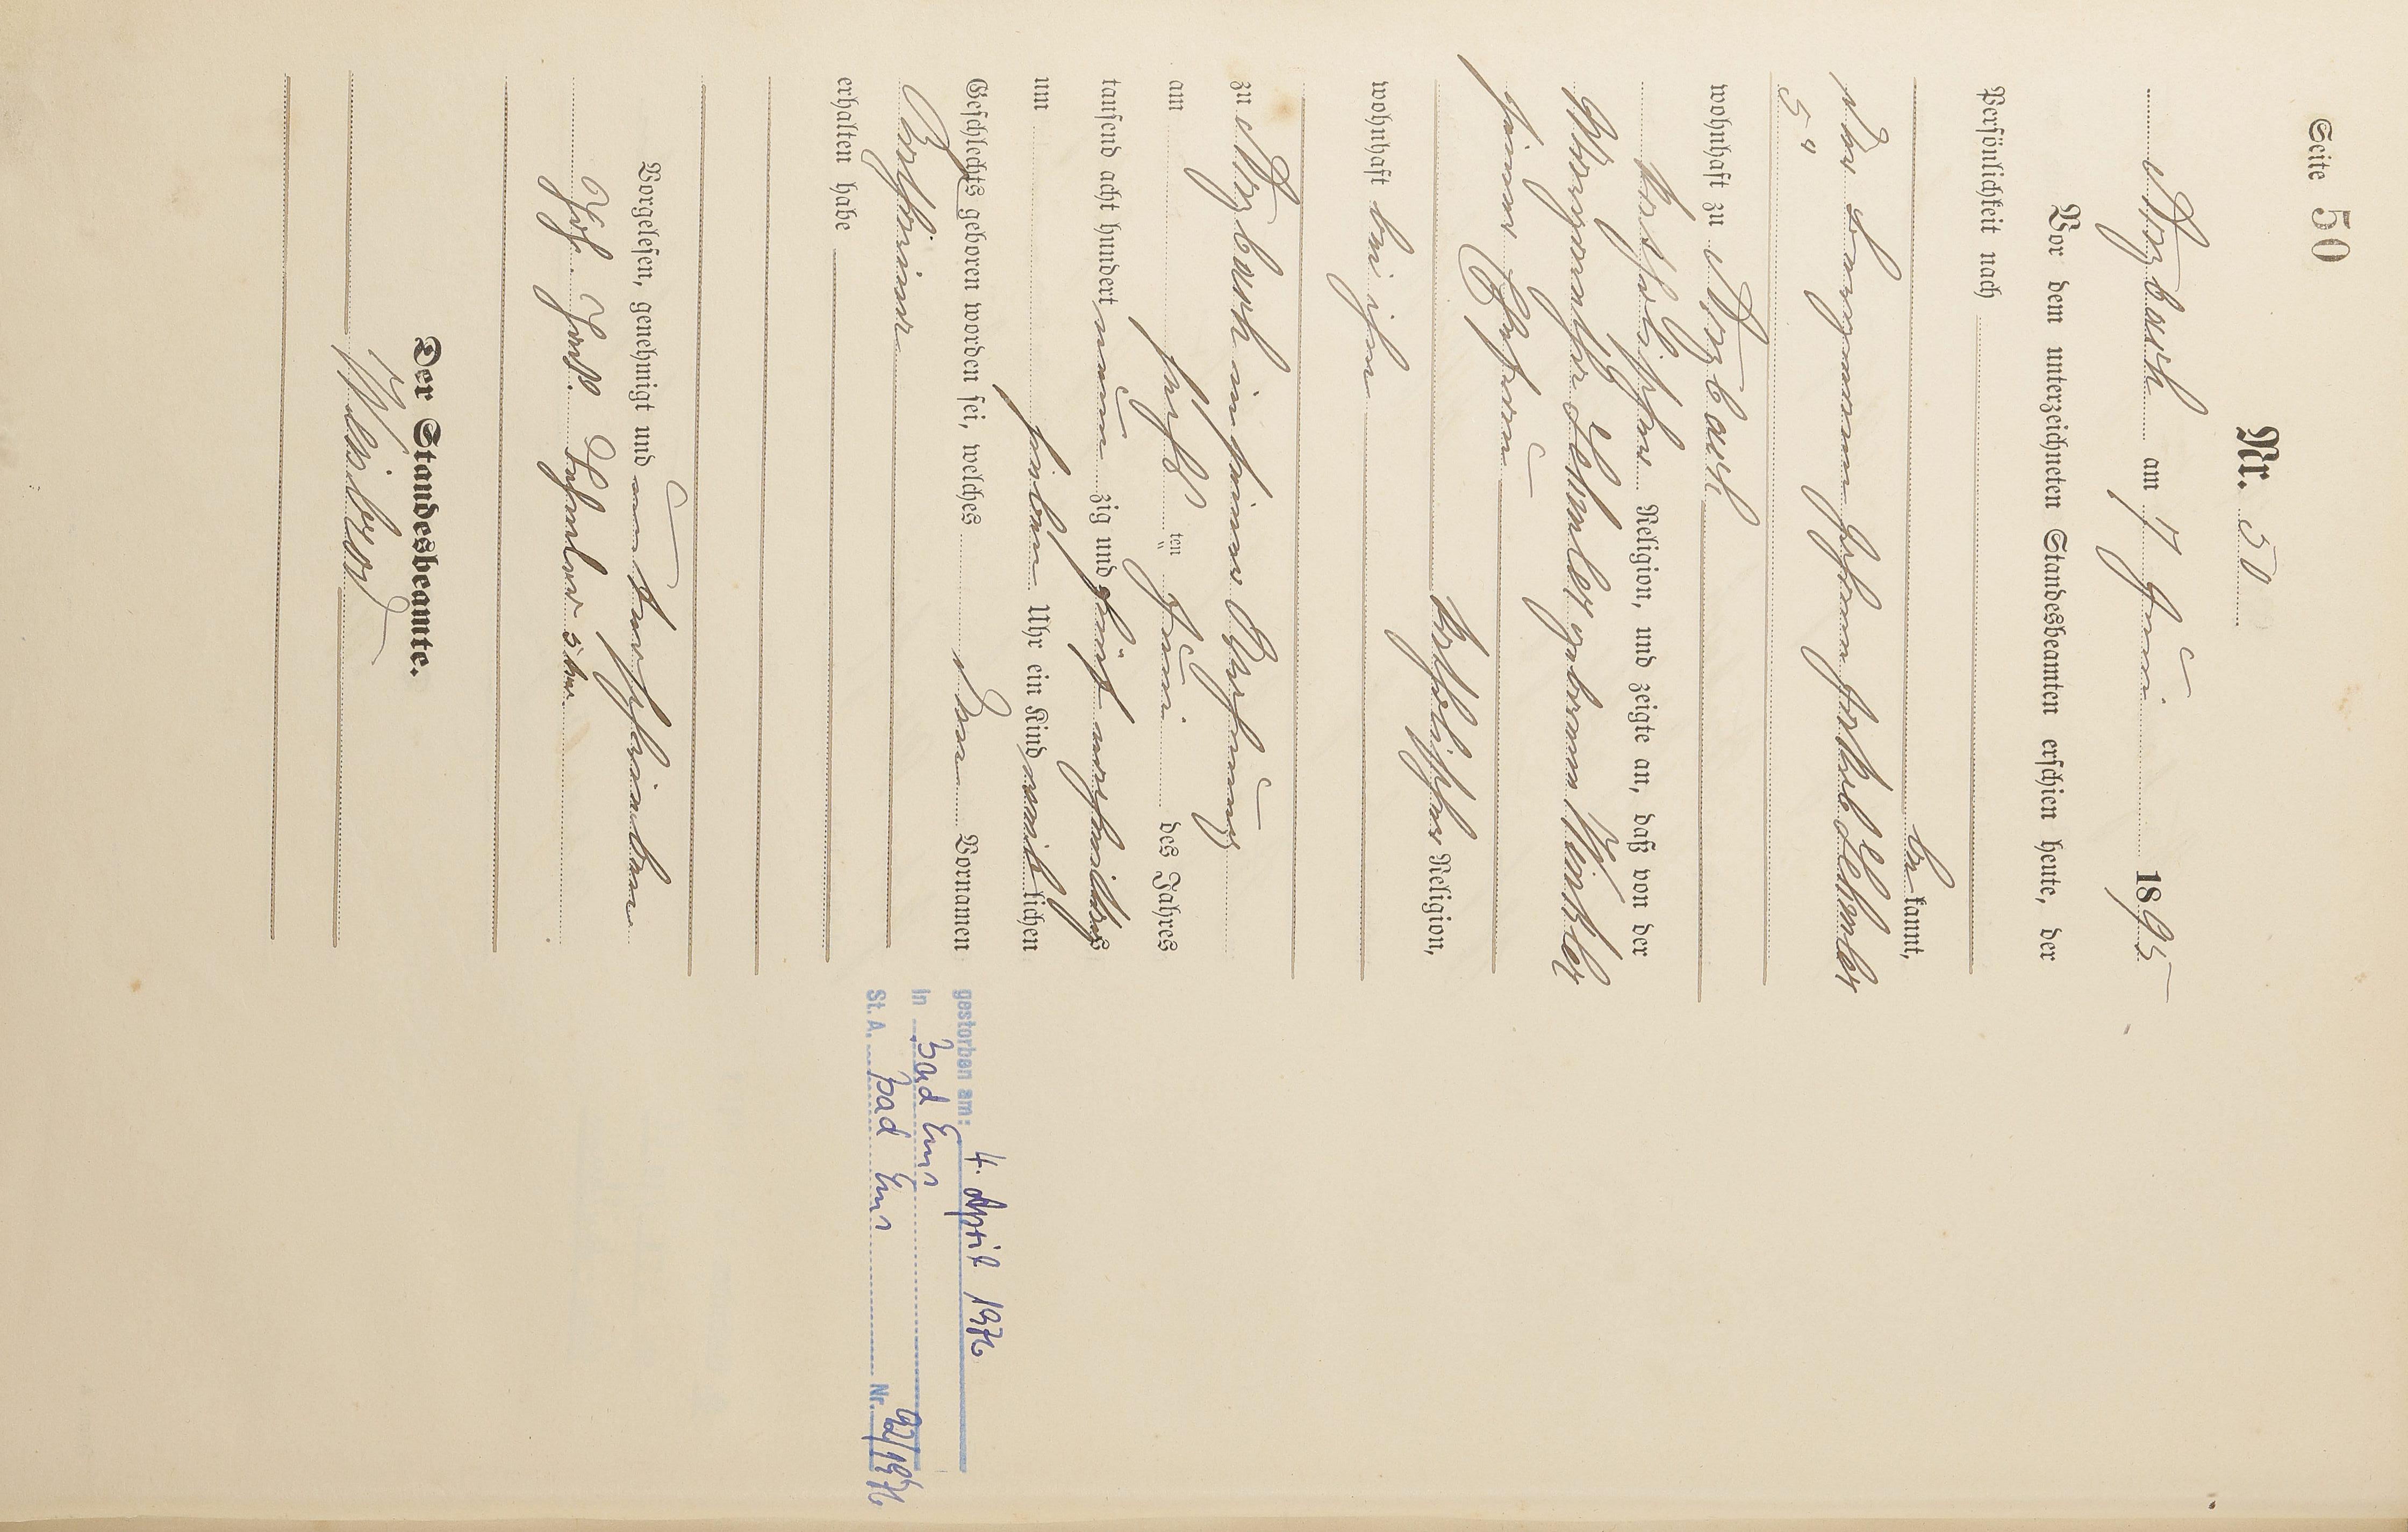 Seite 50
Nr. 50
Arzbach am 7 Juni 1895
Vor dem unterzeichneten Standesbeamten erschien heute, der
Persönlichkeit nach
be kannt,
der Bergmann Johann Jakob Schmler
5ten
wohnhaft zu Arzbach
katholischer Religion, und zeigte an, daß von der
Margaretha geborenen Winkler
seiner Ehefrau
katholischer Religion,
wohnhaft bei ihm
zu Arzbach in seiner Wohnung
am sechsten Juni des Jahres
tausend acht hundert neun zig und fünf vormittags
um sieben Uhr ein Kind weiblichen
Geschlechts geboren worden sei, welches den Vornamen
Josefine
erhalten habe
Vorgelesen, genehmigt und unterschrieben
Joh. Jak. 5ter
Der Standesbeamte.
gestorben am: 4. April 1976
in Bad Ems
St. A. Bad Ems Nr. 92/1976